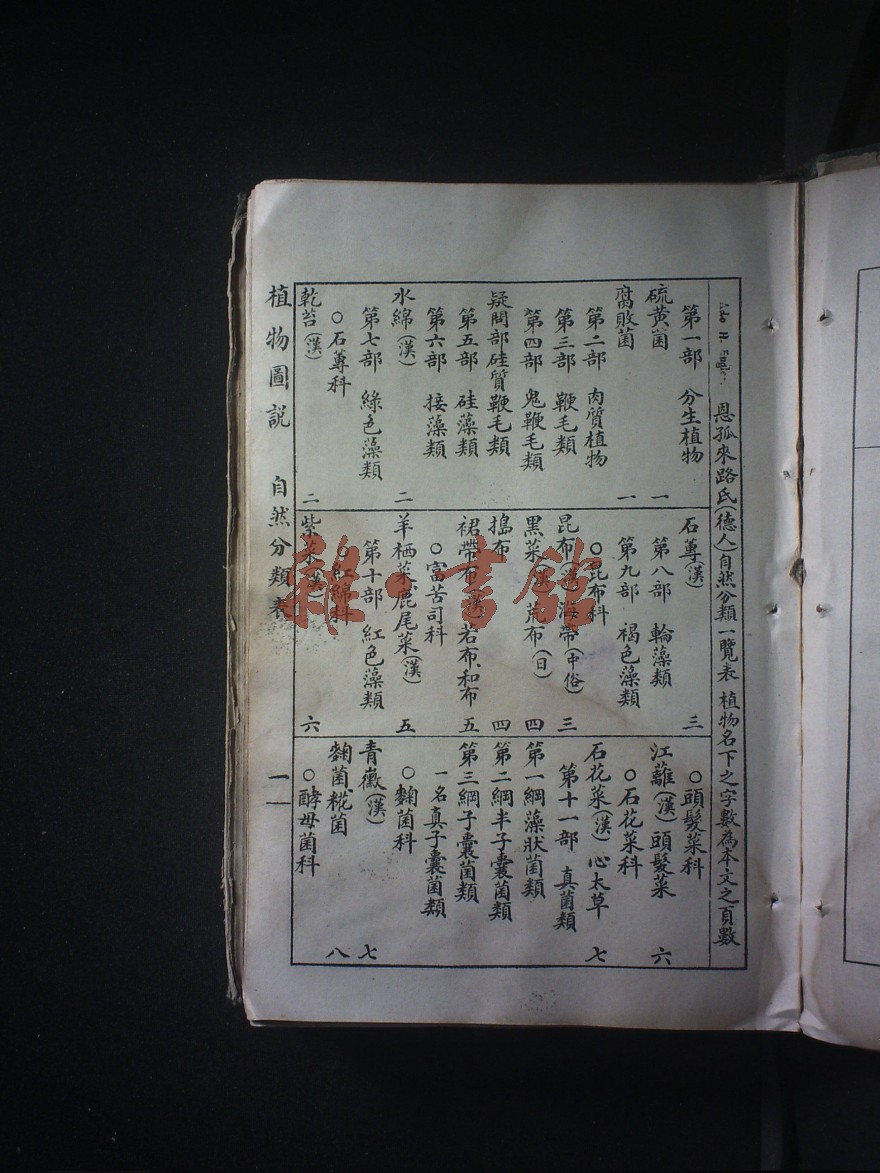 恩孤來路氏(德人)自然分類一覽表 植物名下之字數為本文之頁數
第一部 分生植物
硫黄菌 一
腐敗菌 一
第二部 肉質植物
第三部 鞭毛類
第四部 鬼鞭毛類
疑問部硅質鞭毛類
第五部 硅藻類
第六部 接藻類
水綿(漢) 二
第七部 綠色藻類
○石蓴科
乾苔(漢) 二
石蓴(漢) 三
第八部 輪藻類
第九部 褐色藻類
○昆布科
昆布(漢)海帶(中俗) 三
黑菜(漢)荒布(日) 四
搗布 四
裙帶布(漢)若布、和布 五
○富苦司科
羊栖菜、鹿尾菜(漢) 五
第十部 紅色藻類
○紅綿科
紫菜(漢) 六
○頭髮菜科
江蘺(漢)頭髮菜 六
○石花菜科
石花菜(漢)心太草 七
第十一部 真菌類
第一綱藻狀菌類
第二綱半子囊菌類
第三綱子囊菌類
一名真子囊菌類
○麴菌科
青黴(漢) 七
麴菌、糀菌 八
○酵母菌科
植物圖説 自然分類表 一
雜·書館